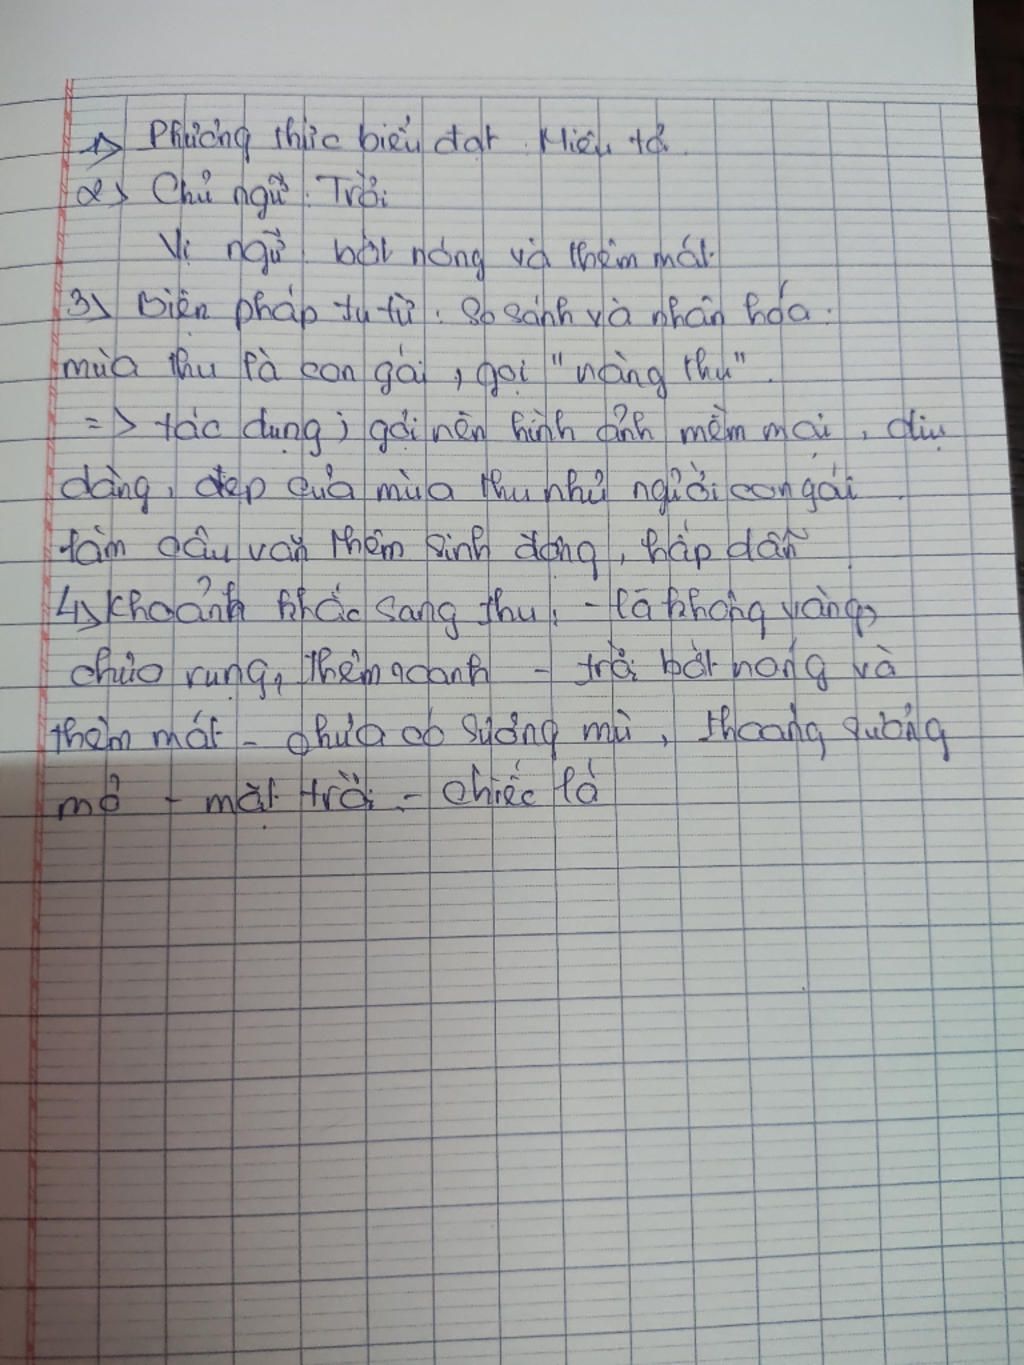 1> Phương thức biểu đạt. Miêu tả.
2> Chủ ngữ: Trời
Vị ngữ: bớt nóng và thêm mát.
3> Biện pháp tu từ: So sánh và nhân hóa.
mùa thu là con gái, gọi "nàng thu".
=> tác dụng; gợi nên hình ảnh mềm mại, dịu
dàng, đẹp của mùa thu như người con gái
làm câu văn thêm sinh động, hấp dẫn
4> Khoảnh khắc sang thu: - lá không vàng,
chưa rụng, thêm xanh - trời bớt nóng và
thêm mát - chưa có sương mù, thoang sương
mờ - mặt trời - chiếc lá